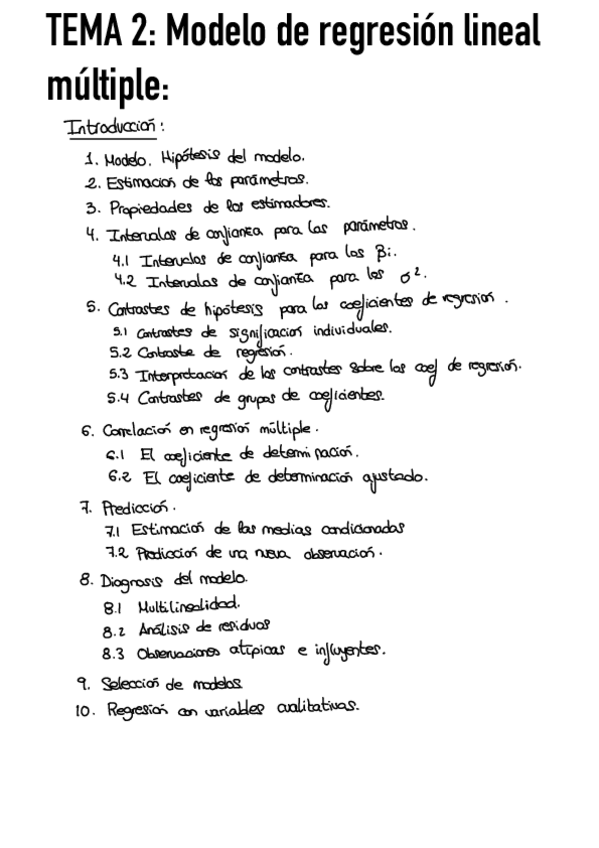 TEMA 2: Modelo de regresión lineal
múltiple:
Introducción:
1. Modelo. Hipótesis del modelo.
2. Estimación de los parámetros.
3. Propiedades de los estimadores.
4. Intervalos de confianza para los parámetros.
4.1 Intervalos de confianza para los βi.
4.2 Intervalos de confianza para los σ².
5. Contrastes de hipótesis para los coeficientes de regresión.
5.1 Contrastes de significación individuales.
5.2 Contraste de regresión.
5.3 Interpretación de los contrastes sobre los coef de regresión.
5.4 Contrastes de grupos de coeficientes.
6. Correlación en regresión múltiple.
6.1 El coeficiente de determinación.
6.2 El coeficiente de determinación ajustado.
7. Predicción.
7.1 Estimación de las medias condicionadas
7.2 Predicción de una nueva observación.
8. Diagnosis del modelo.
8.1 Multilinealidad.
8.2 Análisis de residuos
8.3 Observaciones atípicas e influyentes.
9. Selección de modelos
10. Regresión con variables cualitativas.